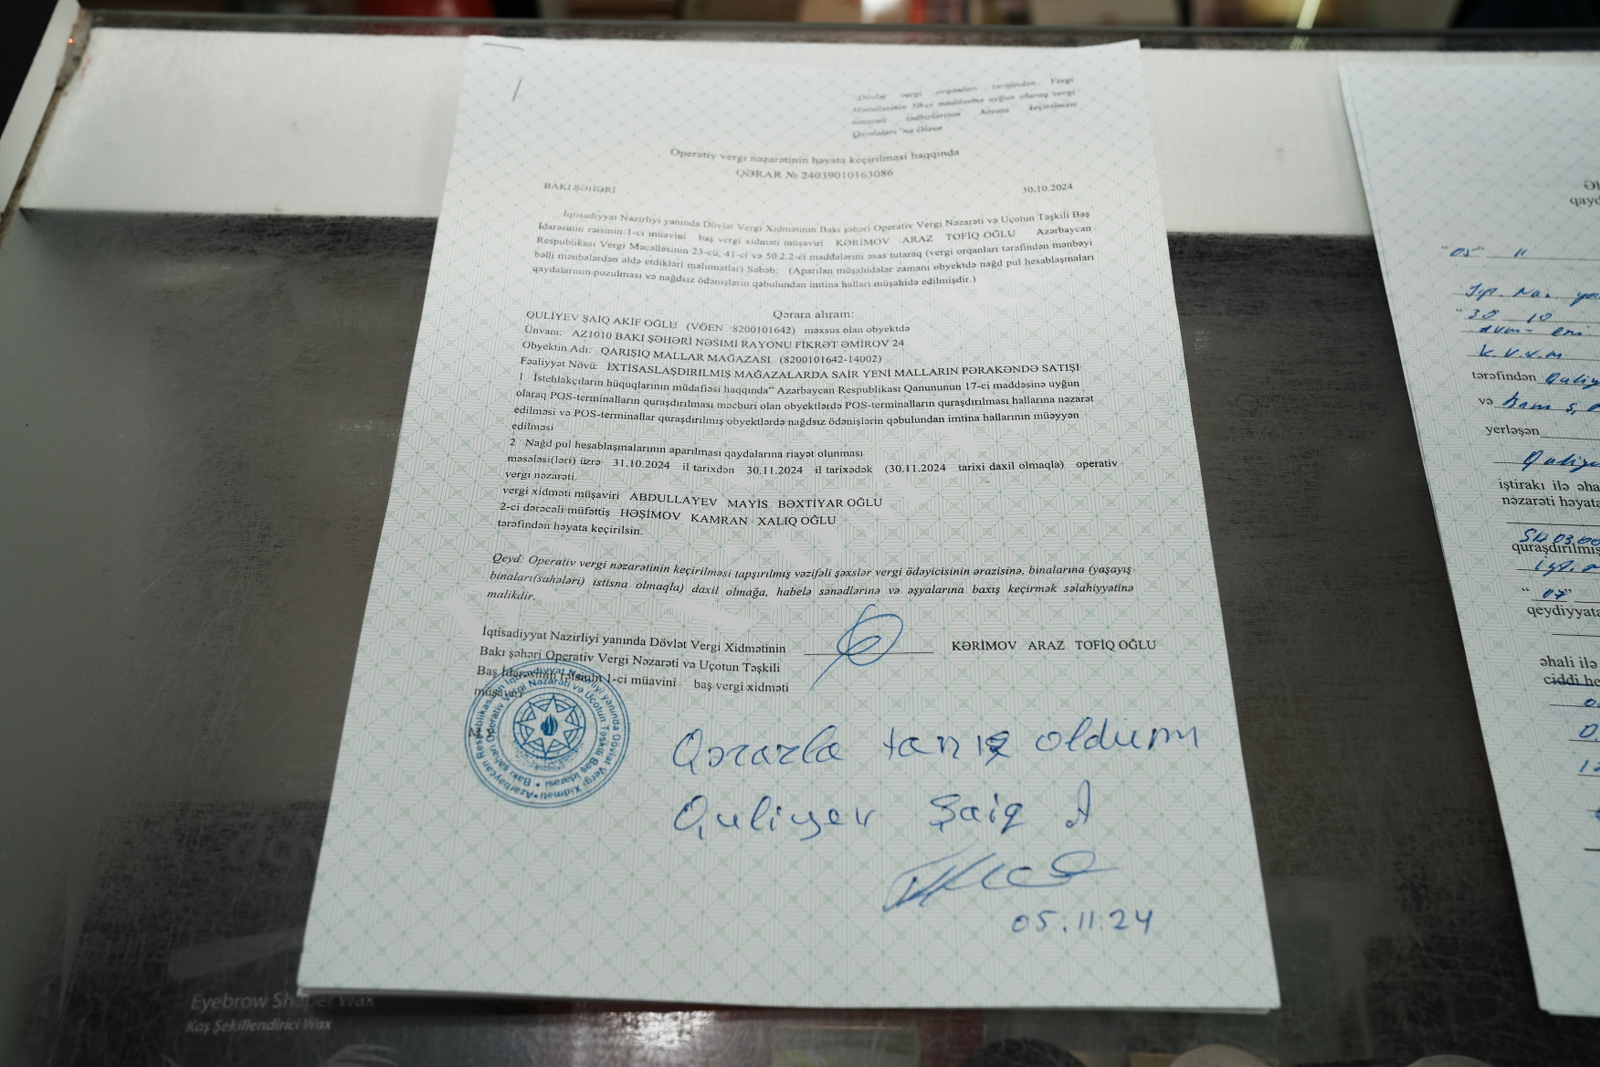 "Dövlət vergi orqanları tərəfindən Vergi
Məcəlləsinin 50-ci maddəsinə uyğun olaraq vergi
nəzarəti tədbirlərinin həyata keçirilməsi
Qaydaları"na Əlavə
Operativ vergi nəzarətinin həyata keçirilməsi haqqında
QƏRAR № 24039010163086
BAKI ŞƏHƏRİ 30.10.2024
İqtisadiyyat Nazirliyi yanında Dövlət Vergi Xidmətinin Bakı şəhəri Operativ Vergi Nəzarəti və Uçotun Təşkili Baş
İdarəsinin rəisinin 1-ci müavini baş vergi xidməti müşaviri KƏRİMOV ARAZ TOFİQ OĞLU Azərbaycan
Respublikası Vergi Məcəlləsinin 23-cü, 41-ci və 50.2.2-ci maddələrini əsas tutaraq (vergi orqanları tərəfindən mənbəyi
bəlli mənbələrdən əldə etdikləri məlumatlar) Səbəb: (Aparılan müşahidələr zamanı obyektdə nağd pul hesablaşmaları
qaydalarının pozulması və nağdsız ödənişlərin qəbulundan imtina halları müşahidə edilmişdir.)
Qərara alıram:
QULİYEV ŞAİQ AKİF OĞLU (VÖEN 8200101642) məxsus olan obyektdə
Ünvanı: AZ1010 BAKI ŞƏHƏRİ NƏSİMİ RAYONU FİKRƏT ƏMİROV 24
Obyektin Adı: QARIŞIQ MALLAR MAĞAZASI (8200101642-14002)
Fəaliyyət Növü: İXTİSASLAŞDIRILMIŞ MAĞAZALARDA SAİR YENİ MALLARIN PƏRAKƏNDƏ SATIŞI
1 İstehlakçıların hüquqlarının müdafiəsi haqqında" Azərbaycan Respublikası Qanununun 17-ci maddəsinə uyğun
olaraq POS-terminalların quraşdırılması məcburi olan obyektlərdə POS-terminalların quraşdırılması hallarına nəzarət
edilməsi və POS-terminallar quraşdırılmış obyektlərdə nağdsız ödənişlərin qəbulundan imtina hallarının müəyyən
edilməsi
2 Nağd pul hesablaşmalarının aparılması qaydalarına riayət olunması
məsələsi(ləri) üzrə 31.10.2024 il tarixdən 30.11.2024 il tarixədək (30.11.2024 tarixi daxil olmaqla) operativ
vergi nəzarəti,
vergi xidməti müşaviri ABDULLAYEV MAYİS BƏXTİYAR OĞLU
2-ci dərəcəli müfəttiş HƏŞİMOV KAMRAN XALIQ OĞLU
tərəfindən həyata keçirilsin.
Qeyd: Operativ vergi nəzarətinin keçirilməsi tapşırılmış vəzifəli şəxslər vergi ödəyicisinin ərazisinə, binalarına (yaşayış
binaları(sahələri) istisna olmaqla) daxil olmağa, habelə sənədlərinə və əşyalarına baxış keçirmək səlahiyyətinə
malikdir.
İqtisadiyyat Nazirliyi yanında Dövlət Vergi Xidmətinin
Bakı şəhəri Operativ Vergi Nəzarəti və Uçotun Təşkili
Baş İdarəsinin rəisinin 1-ci müavini baş vergi xidməti
müşaviri
KƏRİMOV ARAZ TOFİQ OĞLU
Qərarla tanış oldum
Quliyev Şaiq A
05.11.24
Eyebrow Shaper Wax
Kaş Şekillendirici Wax
qayd
"05" 11
"30 10
tərəfindən Quliy
və
yerləşən
Quliy
iştirakı ilə əha
nəzarəti həyata
quraşdırılmış
"07"
qeydiyyata
əhali ilə
ciddi he